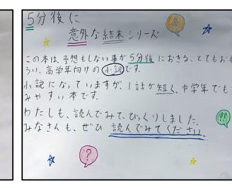 5分後に
意外な結末シリーズ
この本は、予想もしない事が5分後におきる、とてもおもしろ
い、高学年向けの小説です。
小説になっていますが、1話が短く、中学年でも
みやすい本です。
わたしも、読んでみて、びっくりしました。
みなさんも、ぜひ読んでみてください。